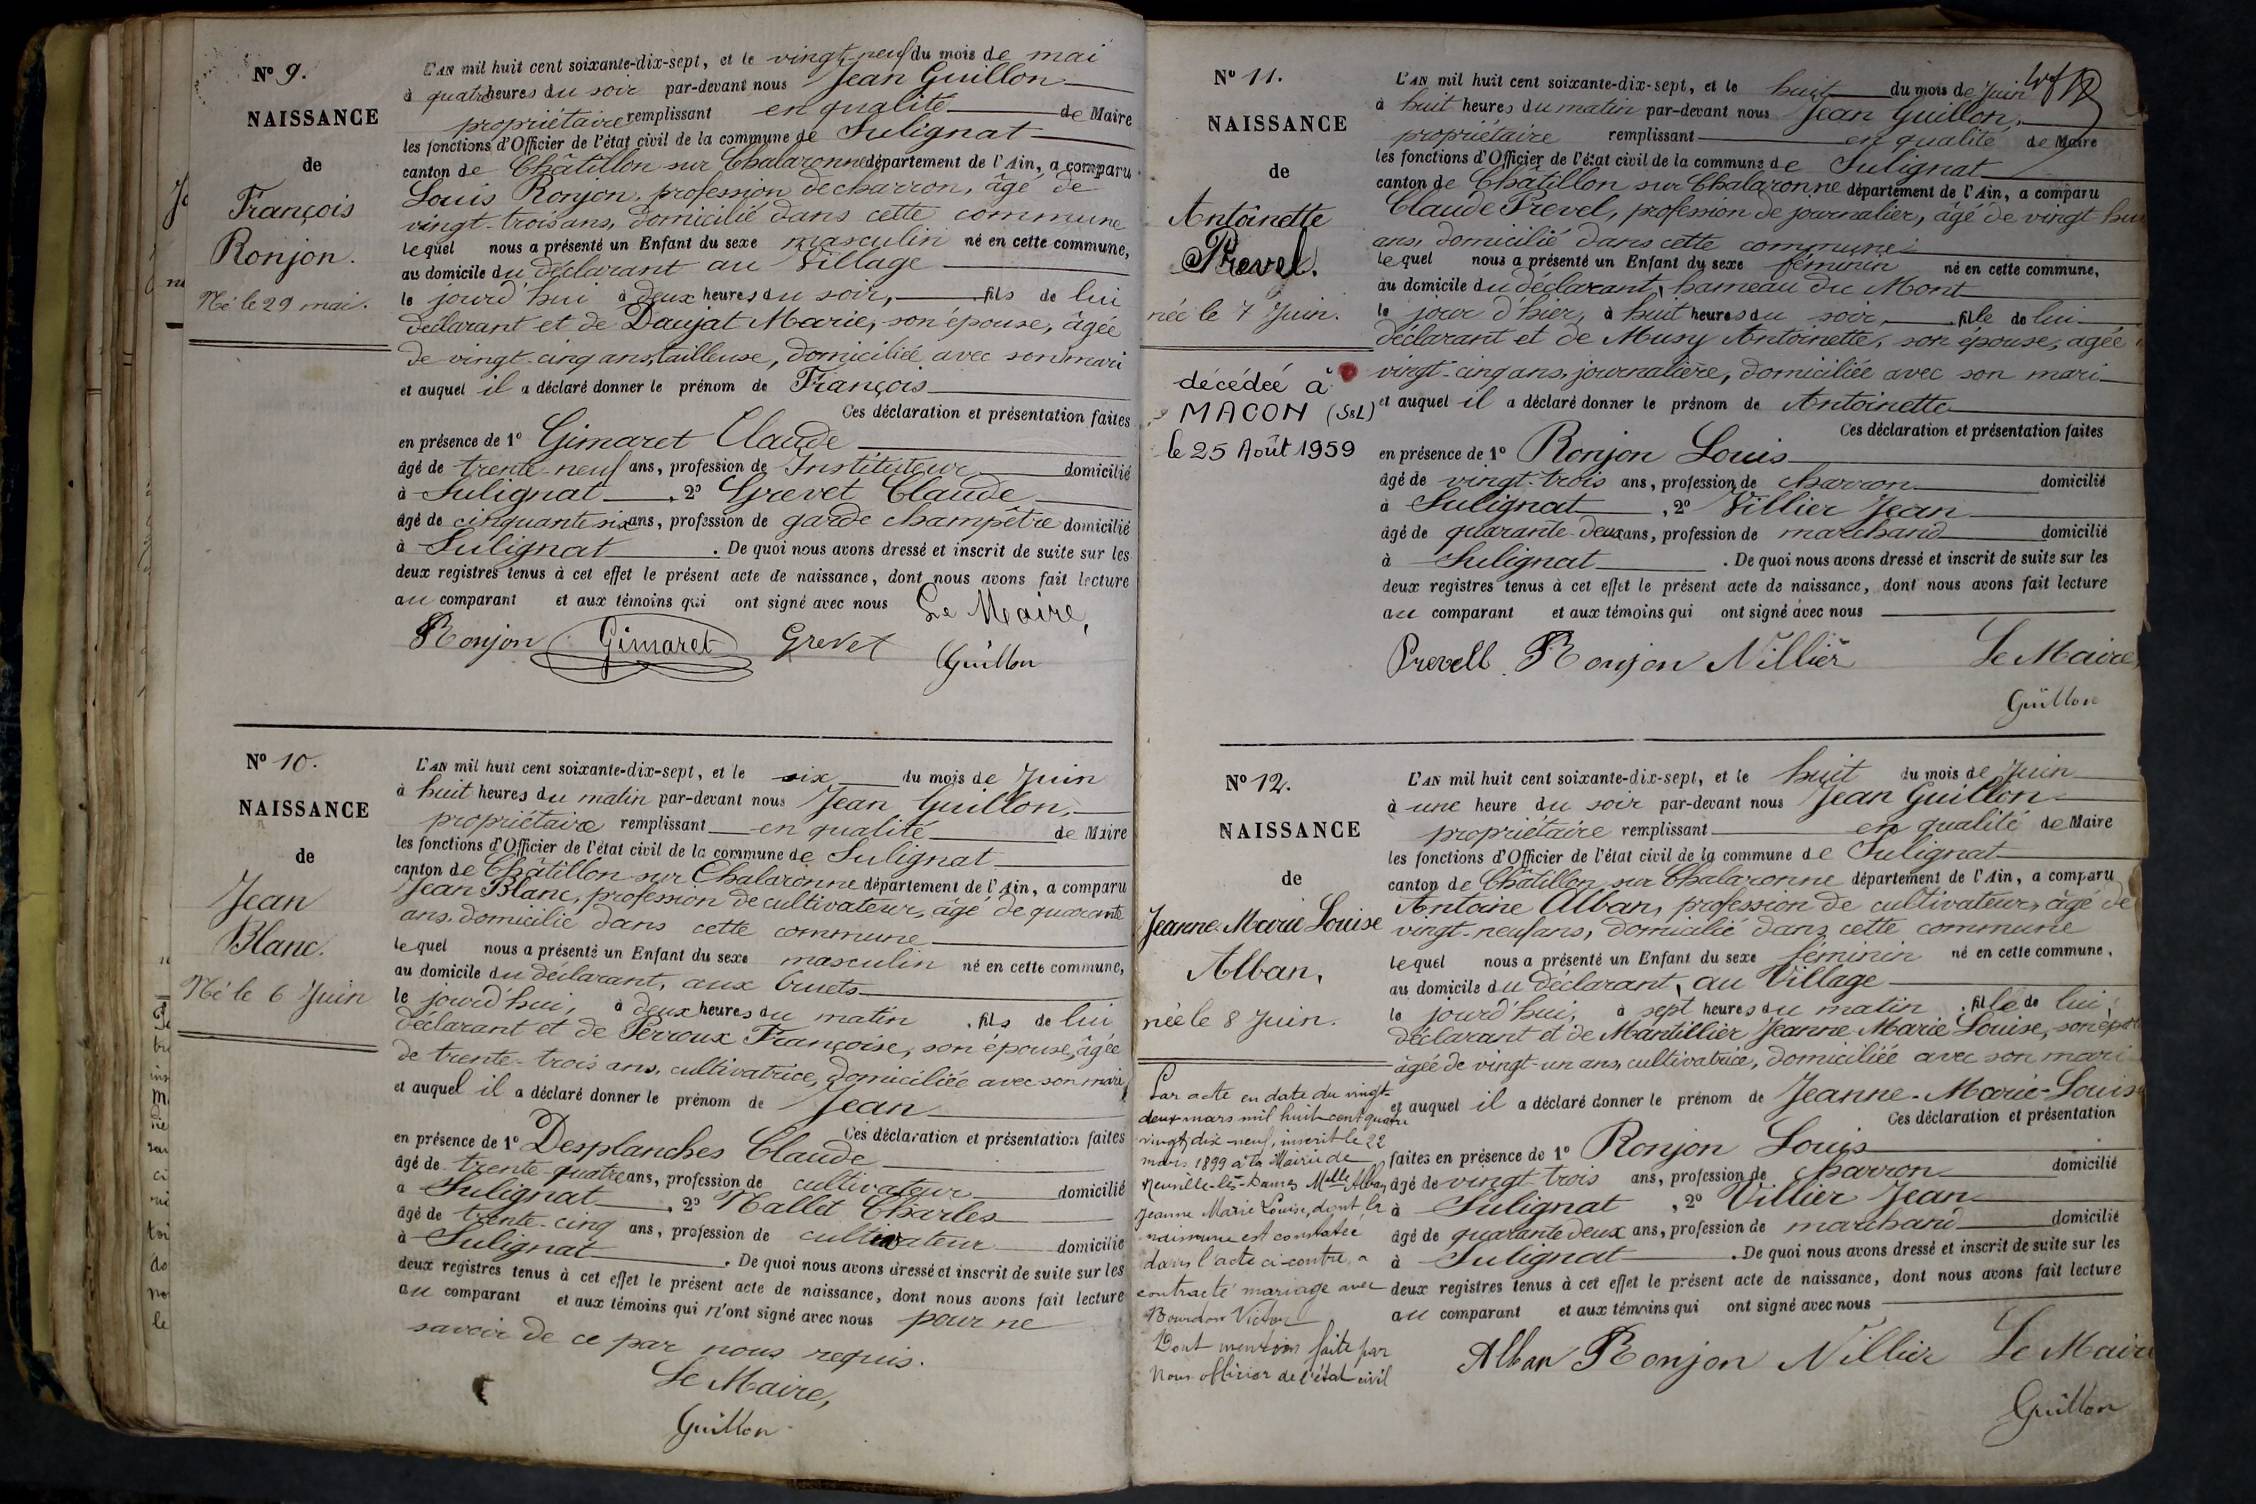 Nº 9.
NAISSANCE
de
François
Ronjon.
Né le 29 mai.
L'AN mil huit cent soixante-dix-sept, et le vingt-neuf du mois de mai
à quatre heures du soir par-devant nous Jean Guillon
propriétaire remplissant en qualité de Maire
les fonctions d'Officier de l'état civil de la commune de Sulignat
canton de Châtillon sur Chalaronne département de l'Ain, a comparu
Louis Ronjon, profession de charron, âgé de
vingt-trois ans, domicilié dans cette commune
lequel nous a présenté un Enfant du sexe masculin né en cette commune,
au domicile du déclarant au Village
le jourd'hui à deux heures du soir, fils de lui
déclarant et de Daujat Marie, son épouse, âgée
de vingt-cinq ans, tailleuse, domiciliée avec son mari
et auquel il a déclaré donner le prénom de François
Ces déclaration et présentation faites
en présence de 1º Gimaret Claude
âgé de trente-neuf ans, profession de Instituteur domicilié
à Sulignat, 2º Grevet Claude
âgé de cinquante six ans, profession de garde champêtre domicilié
à Sulignat. De quoi nous avons dressé et inscrit de suite sur les
deux registres tenus à cet effet le présent acte de naissance, dont nous avons fait lecture
au comparant et aux témoins qui ont signé avec nous Le Maire,
Ronjon Gimaret Grevet Guillon
Nº 10.
NAISSANCE
de
Jean
Blanc.
Né le 6 Juin
L'AN mil huit cent soixante-dix-sept, et le six du mois de Juin
à huit heures du matin par-devant nous Jean Guillon,
propriétaire remplissant en qualité de Maire
les fonctions d'Officier de l'état civil de la commune de Sulignat
canton de Châtillon sur Chalaronne département de l'Ain, a comparu
Jean Blanc, profession de cultivateur, âgé de quarante
ans, domicilié dans cette commune
lequel nous a présenté un Enfant du sexe masculin né en cette commune,
au domicile du déclarant, aux Cruets
le jourd'hui, à deux heures du matin, fils de lui
déclarant et de Perroux Françoise, son épouse, âgée
de trente-trois ans, cultivatrice, domiciliée avec son mari
et auquel il a déclaré donner le prénom de Jean
Ces déclaration et présentation faites
en présence de 1º Desplanches Claude
âgé de trente-quatre ans, profession de cultivateur domicilié
à Sulignat, 2º Nallet Charles
âgé de trente-cinq ans, profession de cultivateur domicilié
à Sulignat. De quoi nous avons dressé et inscrit de suite sur les
deux registres tenus à cet effet le présent acte de naissance, dont nous avons fait lecture
au comparant et aux témoins qui n'ont signé avec nous pour ne
savoir de ce par nous requis.
Le Maire,
Guillon
Nº 11.
NAISSANCE
de
Antoinette
Prevel.
née le 7 Juin.
décédeé à
MACON (S&L)
le 25 Août 1959
L'AN mil huit cent soixante-dix-sept, et le huit du mois de Juin
à huit heures du matin par-devant nous Jean Guillon,
propriétaire remplissant en qualité de Maire
les fonctions d'Officier de l'état civil de la commune de Sulignat
canton de Châtillon sur Chalaronne département de l'Ain, a comparu
Claude Prevel, profession de journalier, âgé de vingt-huit
ans, domicilié dans cette commune
lequel nous a présenté un Enfant du sexe féminin né en cette commune,
au domicile du déclarant, hameau du Mont
le jour d'hier, à huit heures du soir, fille de lui
déclarant et de Musy Antoinette, son épouse, âgée
vingt-cinq ans, journalière, domiciliée avec son mari
et auquel il a déclaré donner le prénom de Antoinette
Ces déclaration et présentation faites
en présence de 1º Ronjon Louis
âgé de vingt-trois ans, profession de charron domicilié
à Sulignat, 2º Villier Jean
âgé de quarante-deux ans, profession de marchand domicilié
à Sulignat. De quoi nous avons dressé et inscrit de suite sur les
deux registres tenus à cet effet le présent acte de naissance, dont nous avons fait lecture
au comparant et aux témoins qui ont signé avec nous
Prevell Ronjon Villier Le Maire,
Guillon
Nº 12.
NAISSANCE
de
Jeanne-Marie Louise
Alban,
née le 8 Juin.
Par acte en date du vingt-
deux mars mil huit cent quatre
vingt dix-neuf, inscrit le 22
mars 1899 à la Mairie de
Neuville-les-Dames Melle Alban
Jeanne Marie Louise, dont la
naissance est constatée
dans l'acte ci-contre, a
contracté mariage avec
Bourdon Victor
Dont mention faite par
Nous officier de l'état civil
L'AN mil huit cent soixante-dix-sept, et le huit du mois de Juin
à une heure du soir par-devant nous Jean Guillon
propriétaire remplissant en qualité de Maire
les fonctions d'Officier de l'état civil de la commune de Sulignat
canton de Châtillon sur Chalaronne département de l'Ain, a comparu
Antoine Alban, profession de cultivateur, âgé de
vingt-neuf ans, domicilié dans cette commune
lequel nous a présenté un Enfant du sexe féminin né en cette commune,
au domicile du déclarant, au Village
le jourd'hui, à sept heures du matin, fille de lui,
déclarant et de Mantillier Jeanne-Marie Louise, son épouse
âgée de vingt-un ans, cultivatrice, domiciliée avec son mari
et auquel il a déclaré donner le prénom de Jeanne-Marie-Louise
Ces déclaration et présentation
faites en présence de 1º Ronjon Louis
âgé de vingt trois ans, profession de charron domicilié
à Sulignat, 2º Villier Jean
âgé de quarante deux ans, profession de marchand domicilié
à Sulignat. De quoi nous avons dressé et inscrit de suite sur les
deux registres tenus à cet effet le présent acte de naissance, dont nous avons fait lecture
au comparant et aux témoins qui ont signé avec nous
Alban Ronjon Villier Le Maire
Guillon